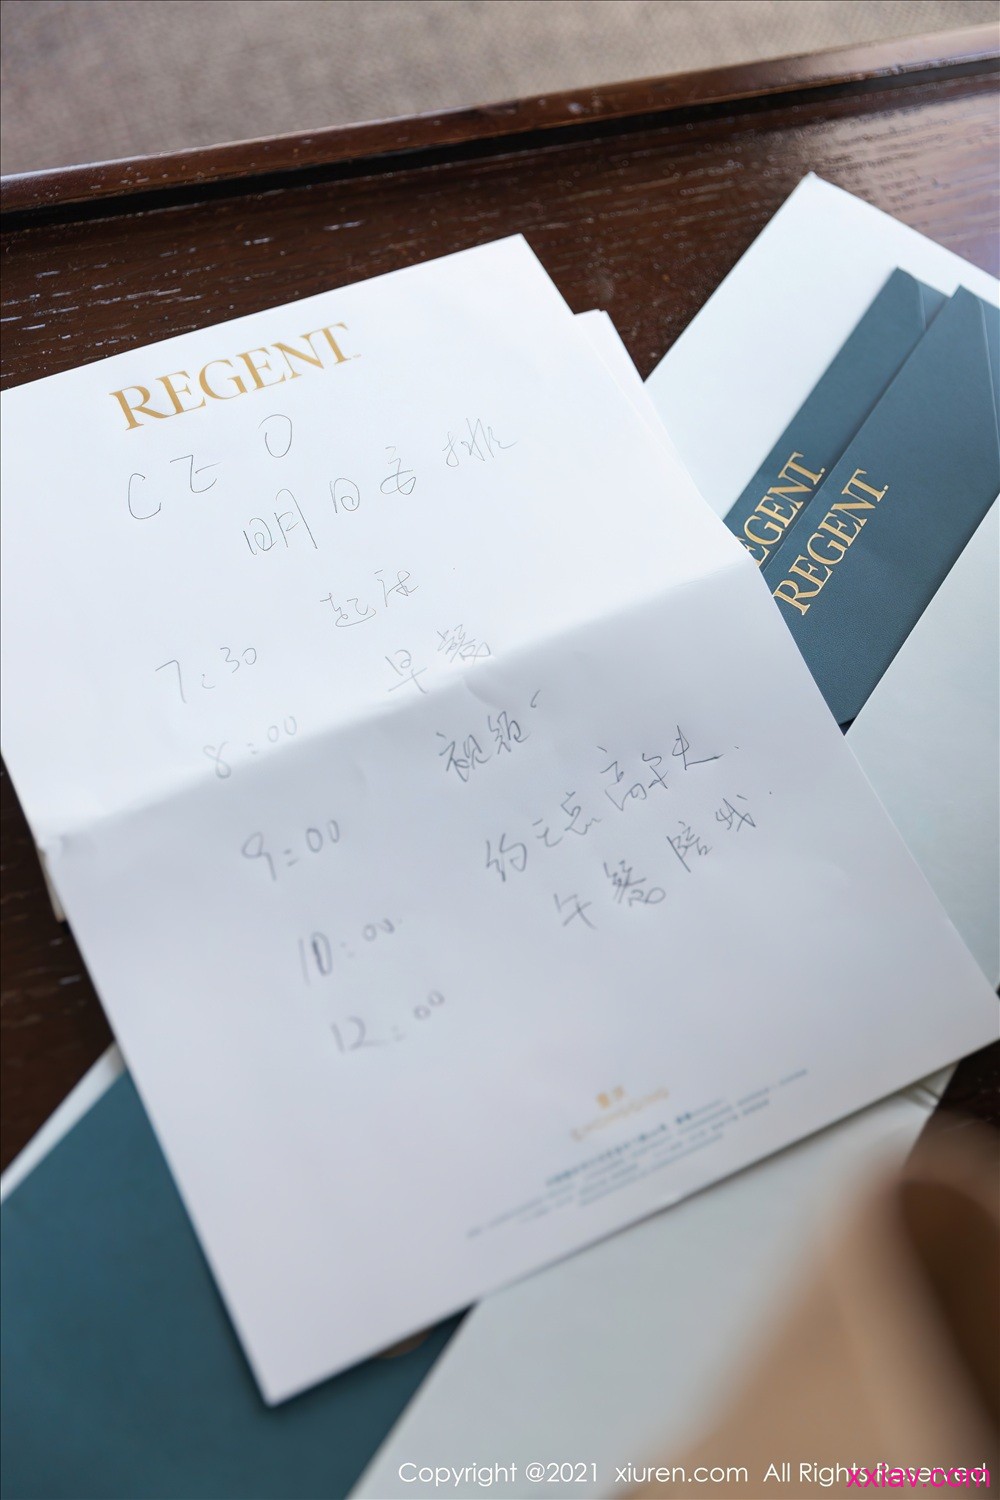 REGENT
CEO
明日安排
7:30 起床
8:00 早餐
9:00 视频
10:00 约王总高尔夫
12:00 午餐陪我
REGENT.
REGENT.
Copyright @2021 xiuren.com All Rights Reserved
xxiav.com